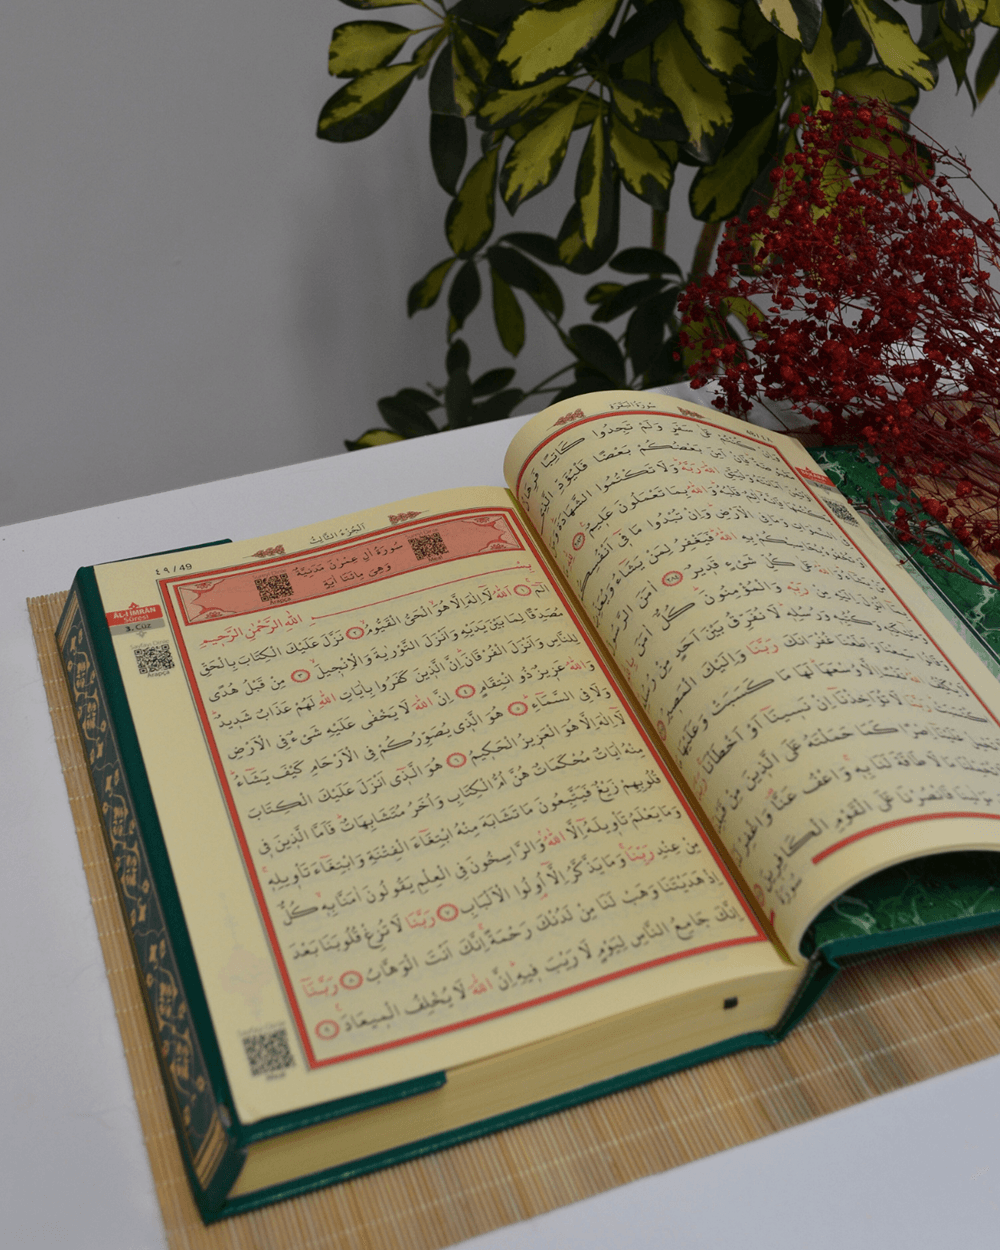 سُورَةُ الْبَقَرَةِ
وَاِنْ كُنْتُمْ عَلٰى سَفَرٍ وَلَمْ تَجِدُوا كَاتِبًا فَرِهَانٌ
فَاِنْ اَمِنَ بَعْضُكُمْ بَعْضًا فَلْيُؤَدِّ الَّذِى
اللّٰهَ رَبَّهُ وَلَا تَكْتُمُوا الشَّهَادَةَ
قَلْبُهُ وَاللّٰهُ بِمَا تَعْمَلُونَ عَلِيمٌ ٢٨٣
وَمَا فِى الْاَرْضِ وَاِنْ تُبْدُوا مَا فِى اَنْفُسِكُمْ
بِهِ اللّٰهُ فَيَغْفِرُ لِمَنْ يَشَاءُ وَيُعَذِّبُ
عَلٰى كُلِّ شَىْءٍ قَدِيرٌ ٢٨٤ اٰمَنَ الرَّسُولُ
مِنْ رَبِّهِ وَالْمُؤْمِنُونَ كُلٌّ اٰمَنَ
وَرُسُلِهِ لَا نُفَرِّقُ بَيْنَ اَحَدٍ مِنْ رُسُلِهِ
وَقَالُوا سَمِعْنَا وَاَطَعْنَا غُفْرَانَكَ رَبَّنَا وَاِلَيْكَ الْمَصِيرُ
لَا يُكَلِّفُ اللّٰهُ نَفْسًا اِلَّا وُسْعَهَا لَهَا مَا كَسَبَتْ وَعَلَيْهَا
رَبَّنَا لَا تُؤَاخِذْنَا اِنْ نَسِينَا اَوْ اَخْطَاْنَا
عَلَيْنَا اِصْرًا كَمَا حَمَلْتَهُ عَلَى الَّذِينَ مِنْ قَبْلِنَا
مَا لَا طَاقَةَ لَنَا بِهِ وَاعْفُ عَنَّا وَاغْفِرْ لَنَا
مَوْلٰينَا فَانْصُرْنَا عَلَى الْقَوْمِ الْكَافِرِينَ
اَلْجُزْءُ الثَّالِثُ
٤٩ / 49
سُورَةُ اٰلِ عِمْرٰنَ مَدَنِيَّةٌ
وَهِىَ مِائَتَا اٰيَةٍ
ÂL-İ İMRÂN
Sûresi
3. Cüz
بِسْمِ اللّٰهِ الرَّحْمٰنِ الرَّحِيمِ
الٓمٓ ١ اَللّٰهُ لَا اِلٰهَ اِلَّا هُوَ الْحَىُّ الْقَيُّومُ ٢ نَزَّلَ عَلَيْكَ الْكِتَابَ بِالْحَقِّ
مُصَدِّقًا لِمَا بَيْنَ يَدَيْهِ وَاَنْزَلَ التَّوْرٰيةَ وَالْاِنْجِيلَ ٣ مِنْ قَبْلُ هُدًى
لِلنَّاسِ وَاَنْزَلَ الْفُرْقَانَ اِنَّ الَّذِينَ كَفَرُوا بِاٰيَاتِ اللّٰهِ لَهُمْ عَذَابٌ شَدِيدٌ
وَاللّٰهُ عَزِيزٌ ذُو انْتِقَامٍ ٤ اِنَّ اللّٰهَ لَا يَخْفٰى عَلَيْهِ شَىْءٌ فِى الْاَرْضِ
وَلَا فِى السَّمَاءِ ٥ هُوَ الَّذِى يُصَوِّرُكُمْ فِى الْاَرْحَامِ كَيْفَ يَشَاءُ
لَا اِلٰهَ اِلَّا هُوَ الْعَزِيزُ الْحَكِيمُ ٦ هُوَ الَّذِى اَنْزَلَ عَلَيْكَ الْكِتَابَ
مِنْهُ اٰيَاتٌ مُحْكَمَاتٌ هُنَّ اُمُّ الْكِتَابِ وَاُخَرُ مُتَشَابِهَاتٌ فَاَمَّا الَّذِينَ فِى
قُلُوبِهِمْ زَيْغٌ فَيَتَّبِعُونَ مَا تَشَابَهَ مِنْهُ ابْتِغَاءَ الْفِتْنَةِ وَابْتِغَاءَ تَاْوِيلِهِ
وَمَا يَعْلَمُ تَاْوِيلَهُ اِلَّا اللّٰهُ وَالرَّاسِخُونَ فِى الْعِلْمِ يَقُولُونَ اٰمَنَّا بِهِ كُلٌّ
مِنْ عِنْدِ رَبِّنَا وَمَا يَذَّكَّرُ اِلَّا اُولُوا الْاَلْبَابِ ٧ رَبَّنَا لَا تُزِغْ قُلُوبَنَا بَعْدَ
اِذْ هَدَيْتَنَا وَهَبْ لَنَا مِنْ لَدُنْكَ رَحْمَةً اِنَّكَ اَنْتَ الْوَهَّابُ ٨ رَبَّنَا
اِنَّكَ جَامِعُ النَّاسِ لِيَوْمٍ لَا رَيْبَ فِيهِ اِنَّ اللّٰهَ لَا يُخْلِفُ الْمِيعَادَ ٩